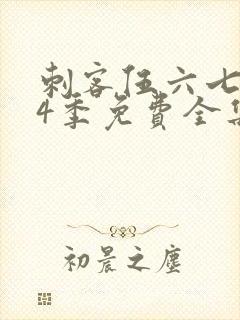 刺客伍六七
4季免費全集
初晨之塵